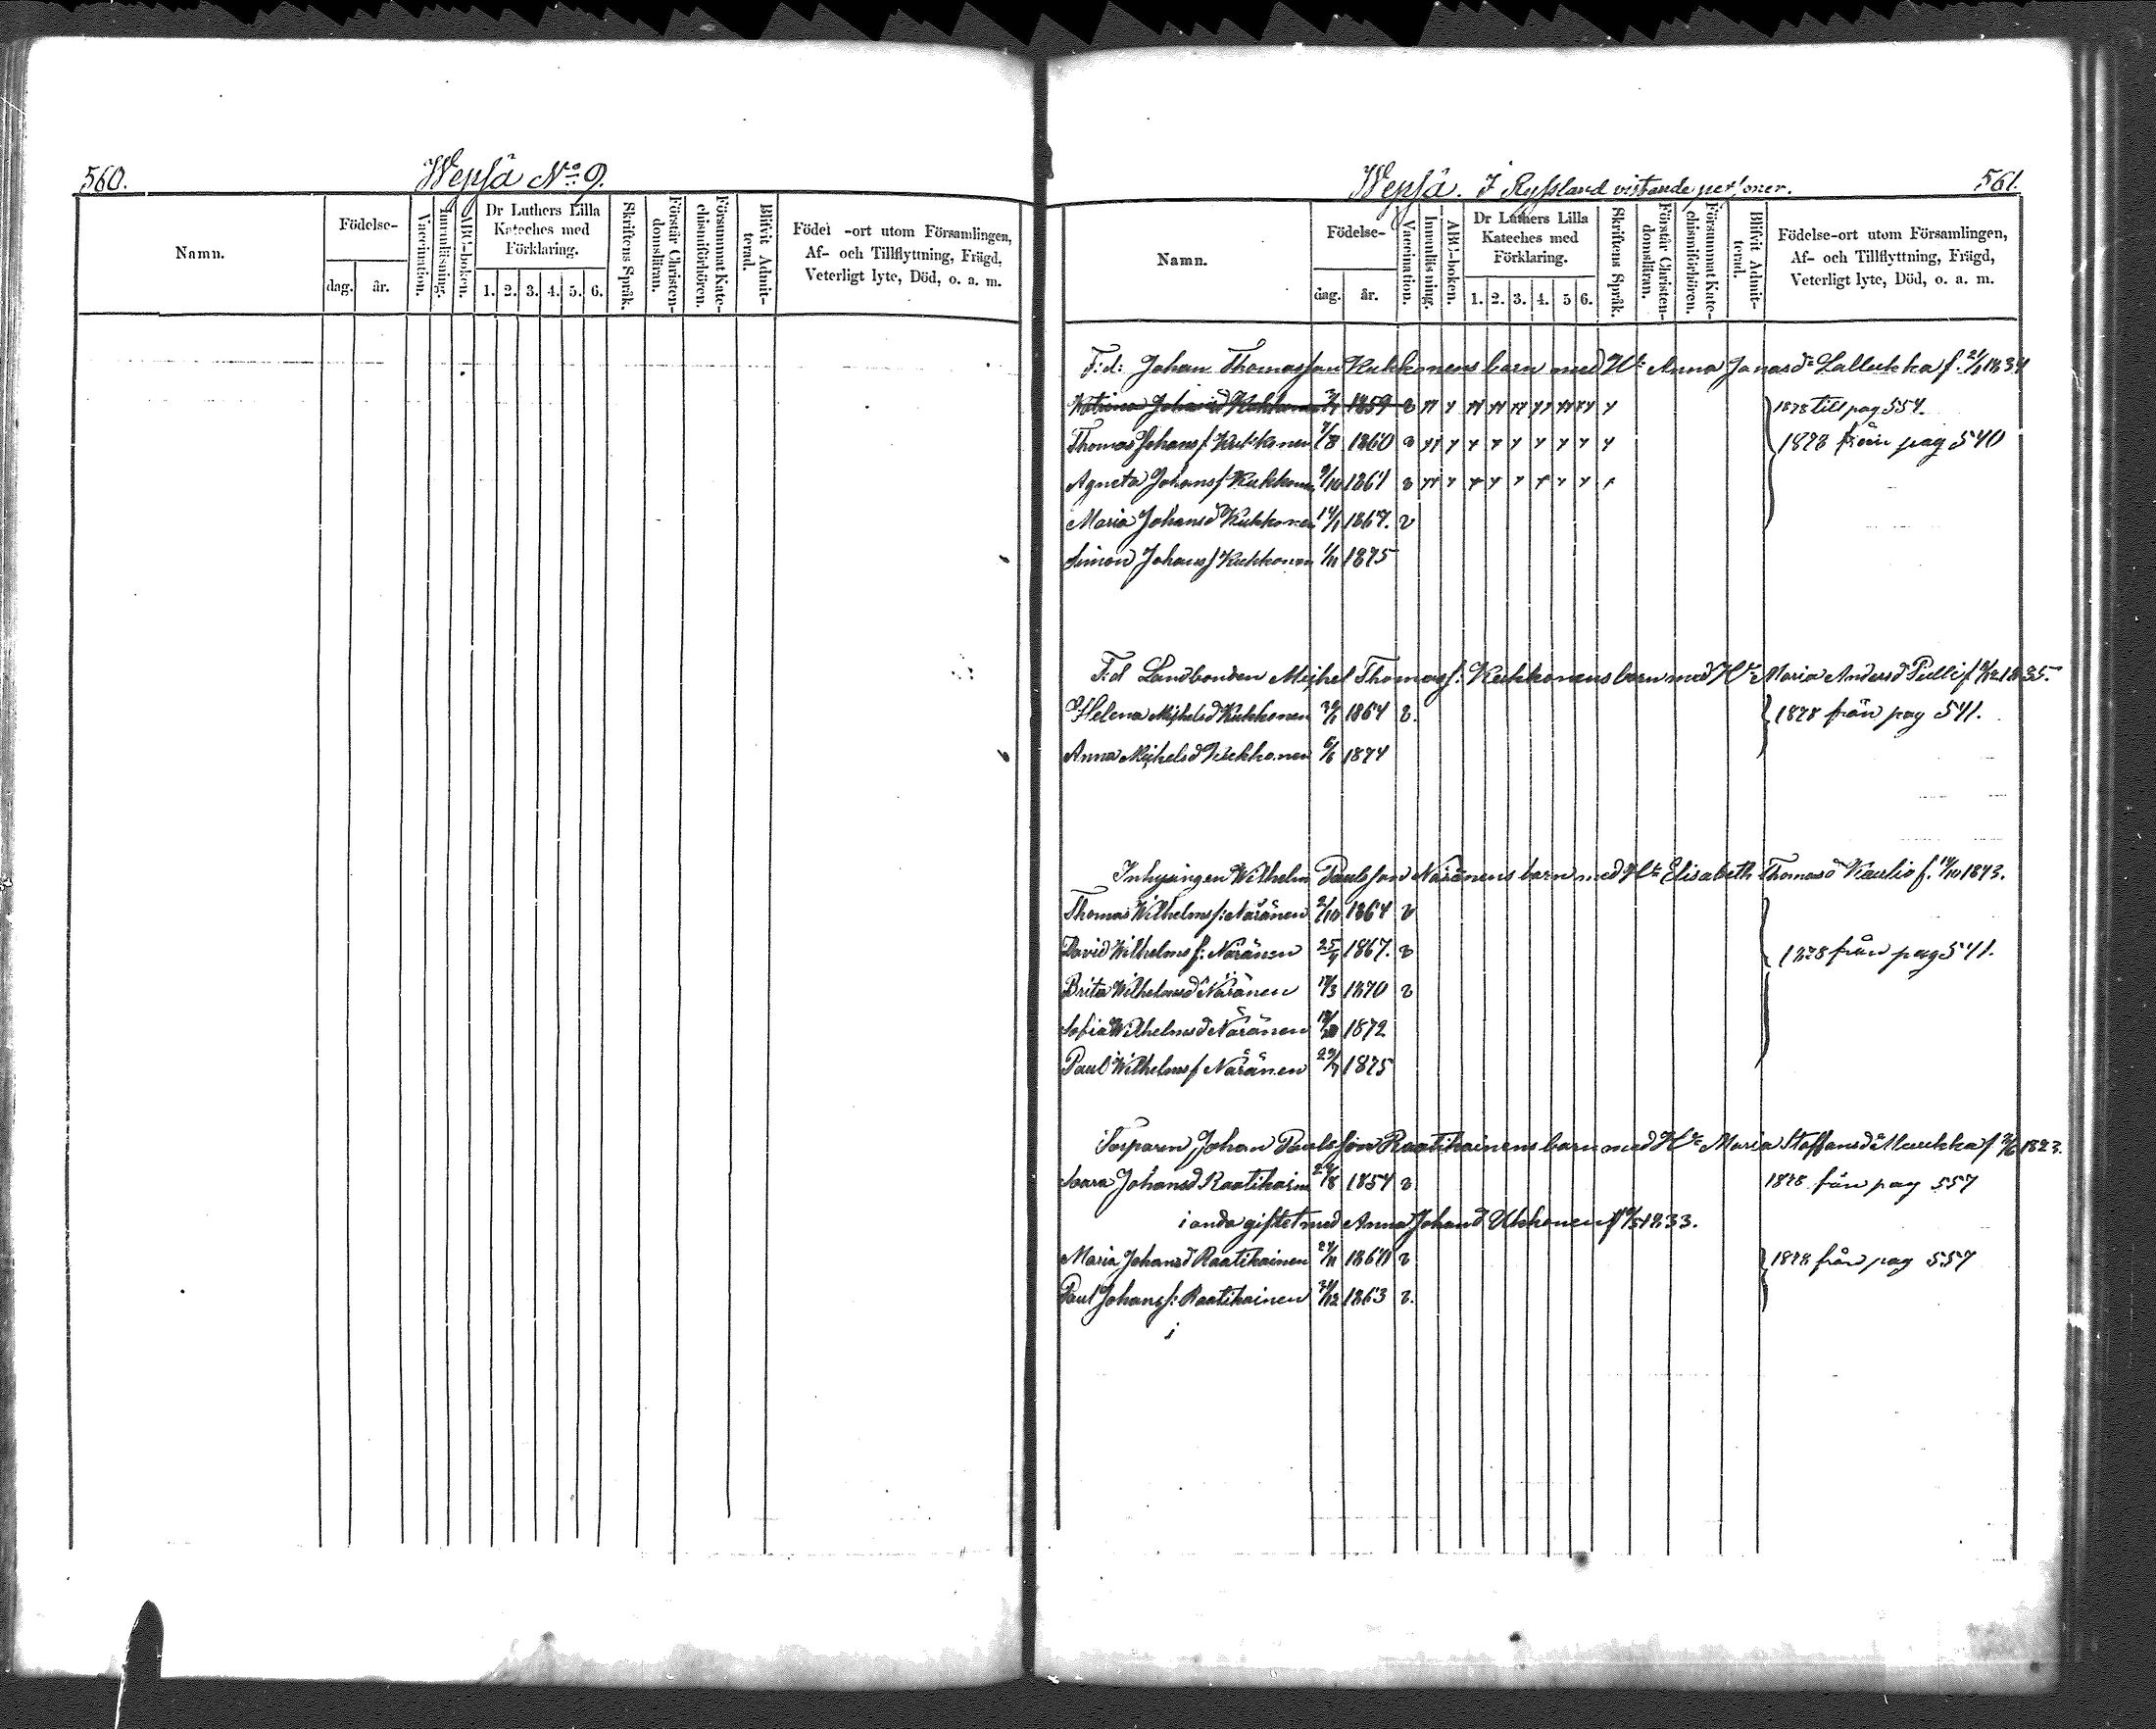 560. Wepsä No 9.
Namn.
Födelse-
dag. år.
Vaccination.
Innanläsning.
ABC-boken.
Dr Luthers Lilla
Kateches med
Förklaring.
1. 2. 3. 4. 5. 6.
Skriftens Språk.
Förstår Christen-
domsläran.
Försummat Kate-
chismiförhören.
Blifvit Admit-
terad.
Födel -ort utom Församlingen,
Af- och Tillflyttning, Frägd,
Veterligt lyte, Död, o. a. m.
Wepsä. I Ryssland vistande personer. 561.
Namn.
Födelse-
dag. år.
Vaccination.
Innanläsning.
ABC-boken.
Dr Luthers Lilla
Kateches med
Förklaring.
1. 2. 3. 4. 5 6.
Skriftens Språk.
Förstår Christen-
domsläran.
Försummat Kate-
chismiförhören.
Blifvit Admit-
terad.
Födelse-ort utom Församlingen,
Af- och Tillflyttning, Frägd,
Veterligt lyte, Död, o. a. m.
F:d: Johan Thomasson Kukkonens barn med H: Anna Jonasd: Lallukka f. 21/1 1834
Katrina Johansd Kukkonen 1859 v 1878 till pag 554.
Thomas Johans f Kukkonen 7/8 1860 v 1878 från pag 540
Agneta Johans f Kukkonen 9/10 1864 v
Maria Johansd Kukkonen 14/1 1867. v
Simon Johans f Kukkonen 1/11 1875
F:d Landbonden Michel Thomasf: Kukkonens barn med H: Maria Andersd Pulli f 1835.
Helena Michelsd Kukkonen 1864 v. 1878 från pag 541.
Anna Michelsd Kukkonen 6/6 1874
Inhysingen Wilhelm Paulsson Näränens barn med H: Elisabeth Thomasd Kaulio f. 14/10 1843.
Thomas Wilhelms f: Näränen 2/10 1864 v
David Wilhelms f: Näränen 25/4 1867. v 1878 från pag 541.
Brita Wilhelmsd Näränen 1870 v
Sofia Wilhelmsd Näränen 1872
Paul Wilhelms f Näränen 1875
Torparn Johan Paulsson Raatikainens barn med H: Maria Staffansd Muukka f 1823.
Saara Johansd Raatikainen 1854 v 1878 från pag 557
i andra giftet med Anna Johansd Ukkonen f 1833.
Maria Johansd Raatikainen 1860 v 1878 från pag 557
Paul Johans f: Raatikainen 1863 v.